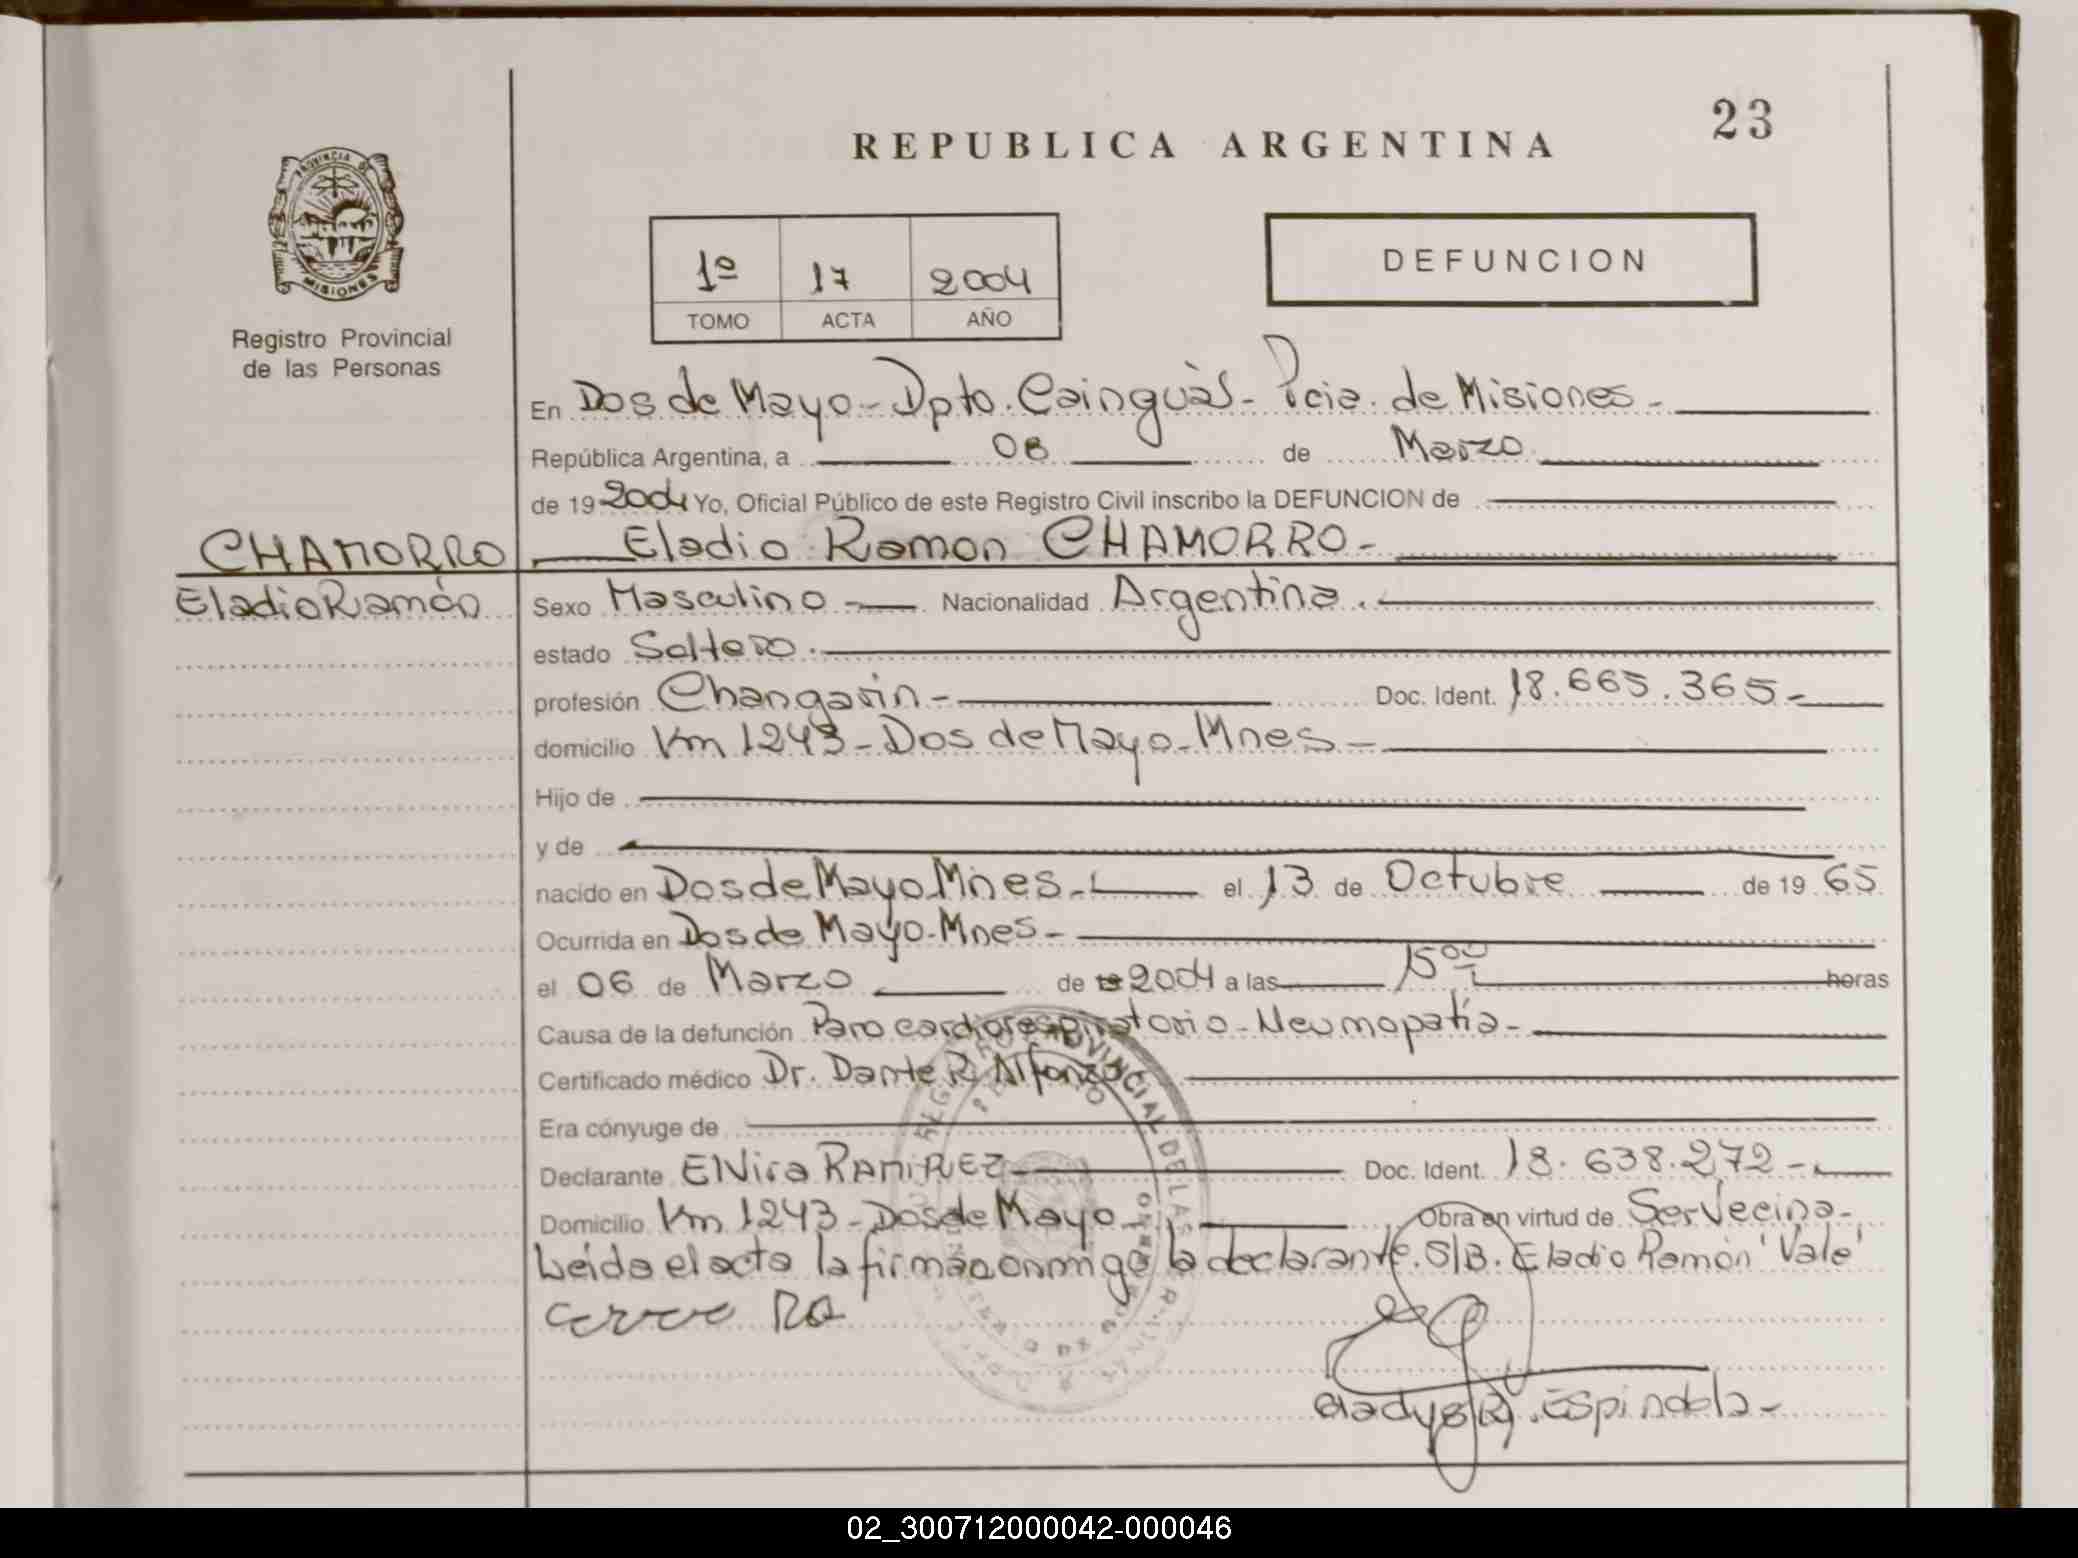 23
REPUBLICA ARGENTINA
PROVINCIA DE
MISIONES
Registro Provincial
de las Personas
1º 17 2004
TOMO ACTA AÑO
DEFUNCION
En Dos de Mayo - Dpto. Cainguàs - Pcia. de Misiones -
República Argentina, a 08 de Marzo
de 19 2004 Yo, Oficial Público de este Registro Civil inscribo la DEFUNCION de
CHAMORRO Eladio Ramon CHAMORRO -
Eladio Ramón Sexo Masculino - Nacionalidad Argentina.
estado Soltero.
profesión Changarin - Doc. Ident. 18.665.365 -
domicilio Km 1243 - Dos de Mayo - Mnes -
Hijo de
y de
nacido en Dos de Mayo Mnes - el 13 de Octubre de 19 65
Ocurrida en Dos de Mayo - Mnes -
el 06 de Marzo de 19 2004 a las 15 00 horas
Causa de la defunción Paro cardiorespiratorio - Neumopatía -
Certificado médico Dr. Dante R. Alfonzo
Era cónyuge de
Declarante Elvira RAMIREZ - Doc. Ident. 18.638.272 -
Domicilio Km 1243 - Dos de Mayo - Obra en virtud de Ser Vecina -
Leída el acta la firma conmigo la declarante. S/B. Eladio Ramón 'Vale'
Gladys R. Espindola -
REGISTRO PROVINCIAL DE LAS
02_300712000042-000046